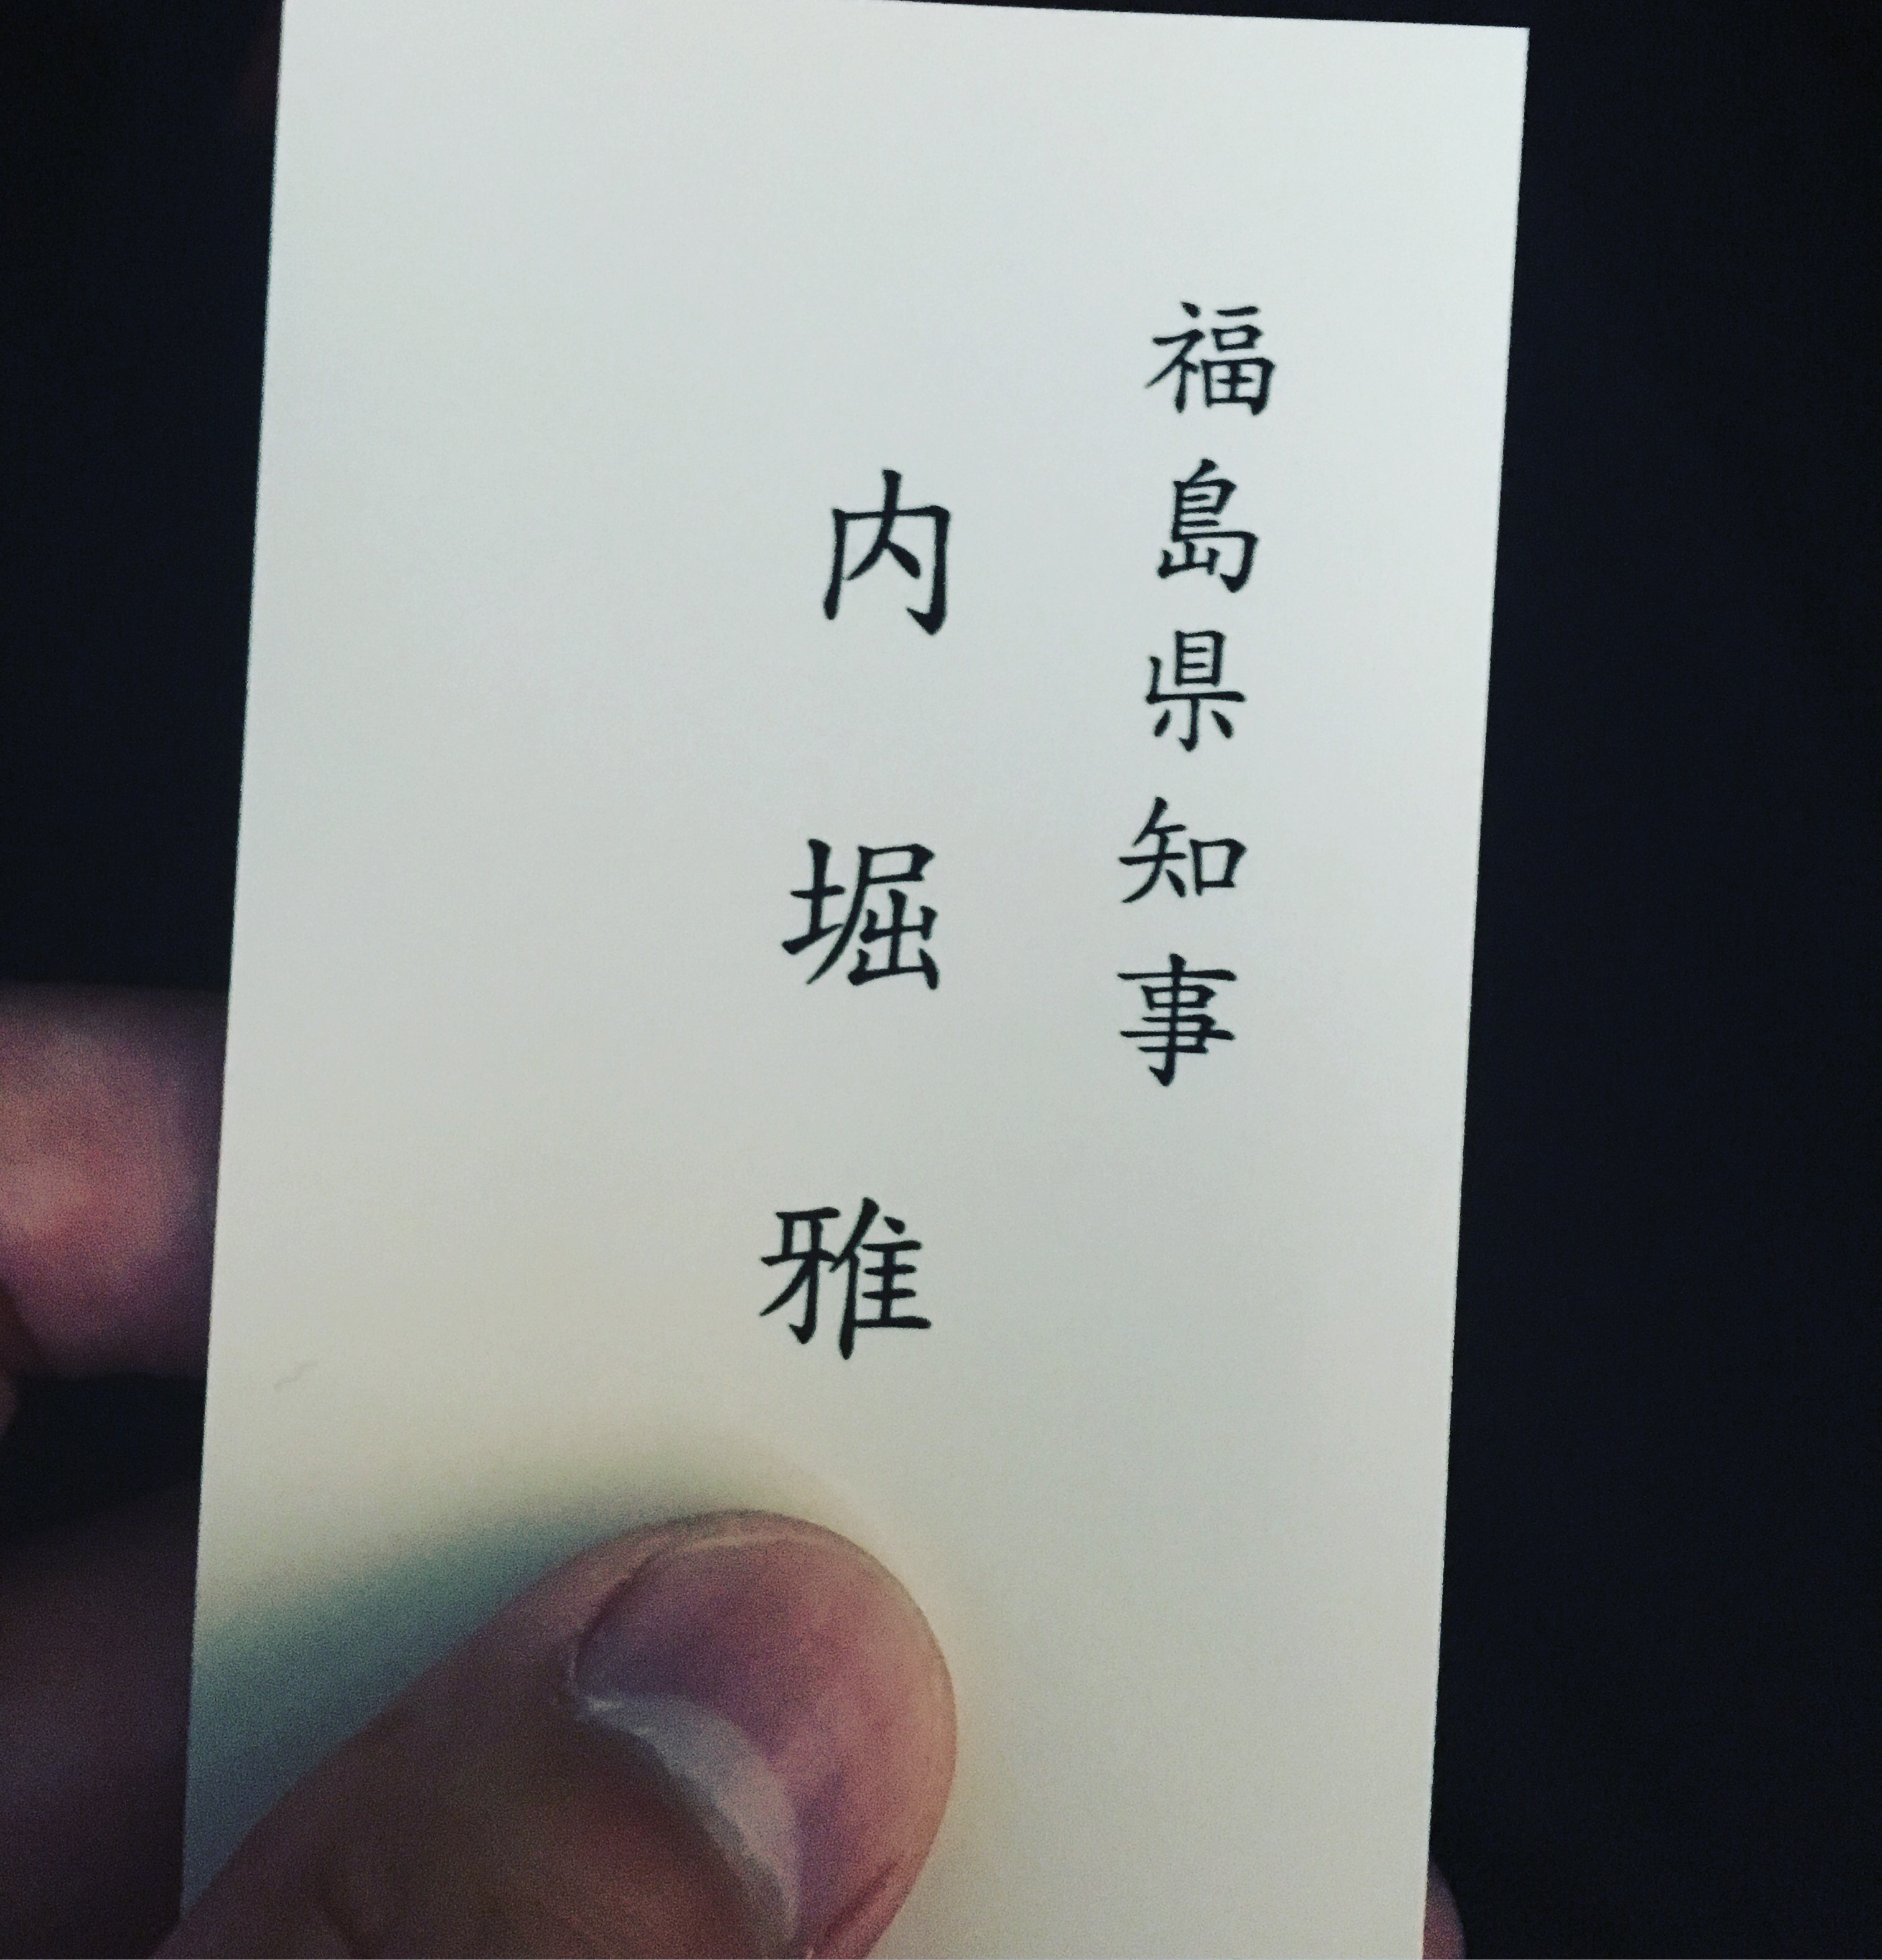 福島県知事
内堀雅